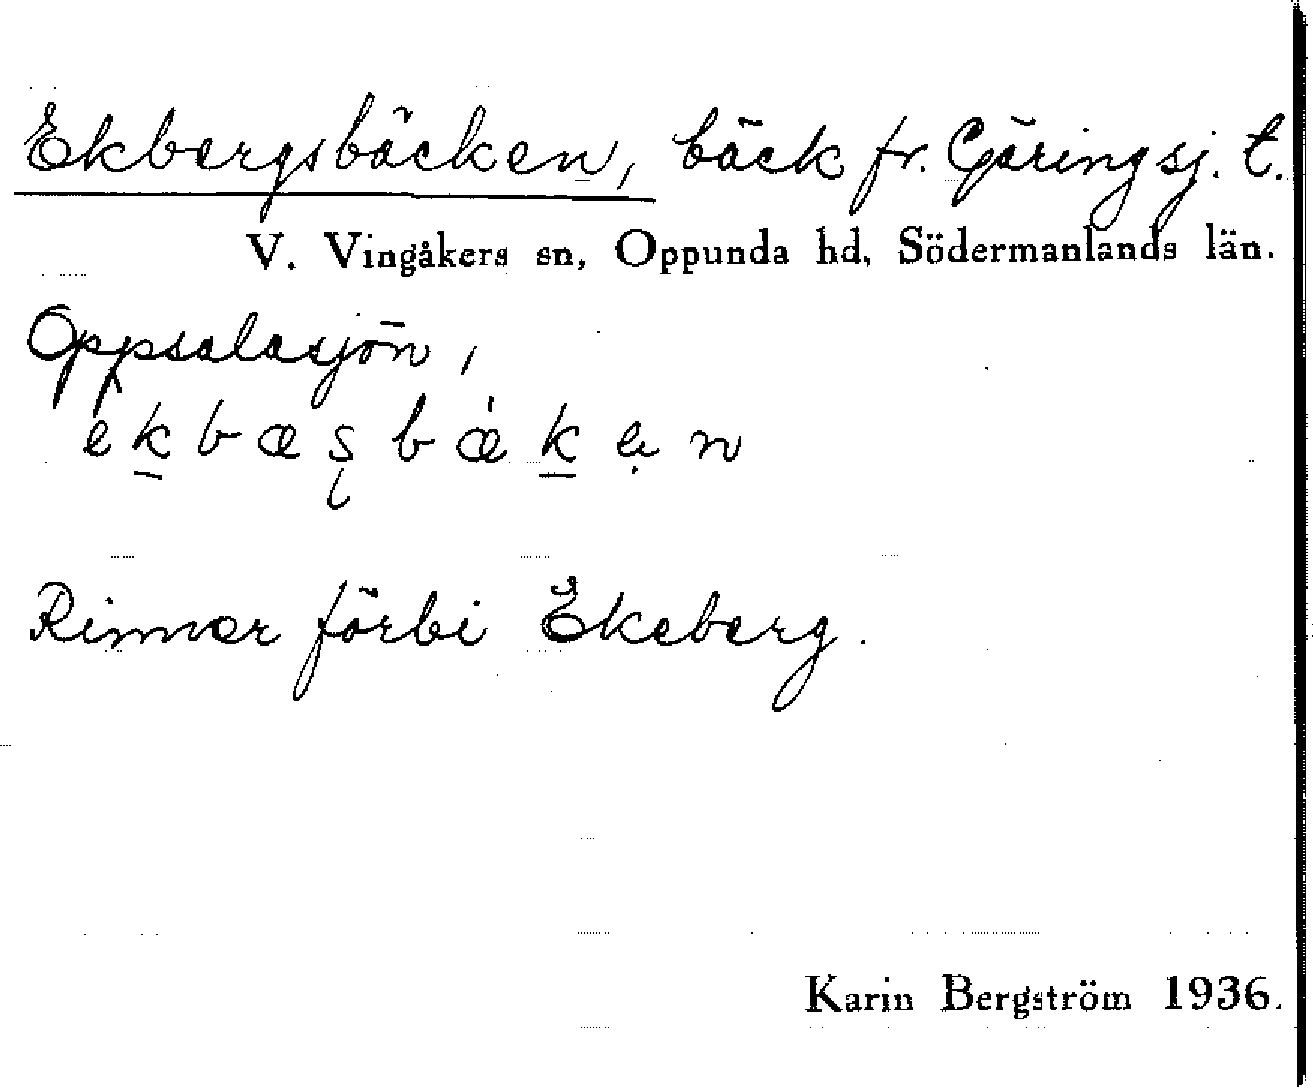 Ekbergsbäcken, bäck fr. Gäringsj. t.
V. Vingåkers sn, Oppunda hd, Södermanlands län.
Oppsalasjön,
èk̲bæʂbǽk̲ẹn
Rinner förbi Ekeberg.
Karin Bergström 1936.